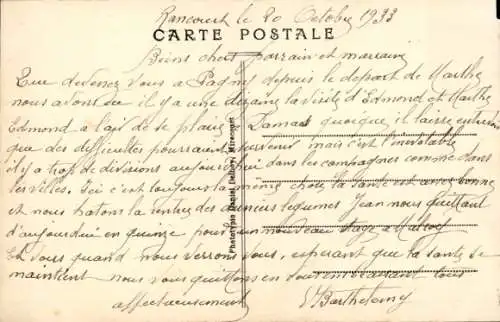 Rancourt le 20 Octobre 1933
CARTE POSTALE
Biens chers parrain et marraine
Que devenez vous à Pagnes depuis le départ de Marthe
nous avons eu il y a une dizaine la visite d'Edmond et Marthe
Edmond a l'air de se plaire à Damas quoique il laisse entrevoir
que des difficultés pourraient survenir mais c'est l'inévitable
il y a trop de divisions aujourd'hui dans les campagnes comme dans
les villes. Ici c'est toujours la même chose la santé est assez bonne
et nous hâtons la rentrée des derniers légumes Jean nous quittant
d'aujourd'hui en quinze pour un nouveau stage à
Et vous quand nous verrons vous, espérant que la santé se
maintient nous vous quittons en vous embrassant tous
affectueusement V Barthelemy
Phototypie Daniel Delboy, Mirecourt